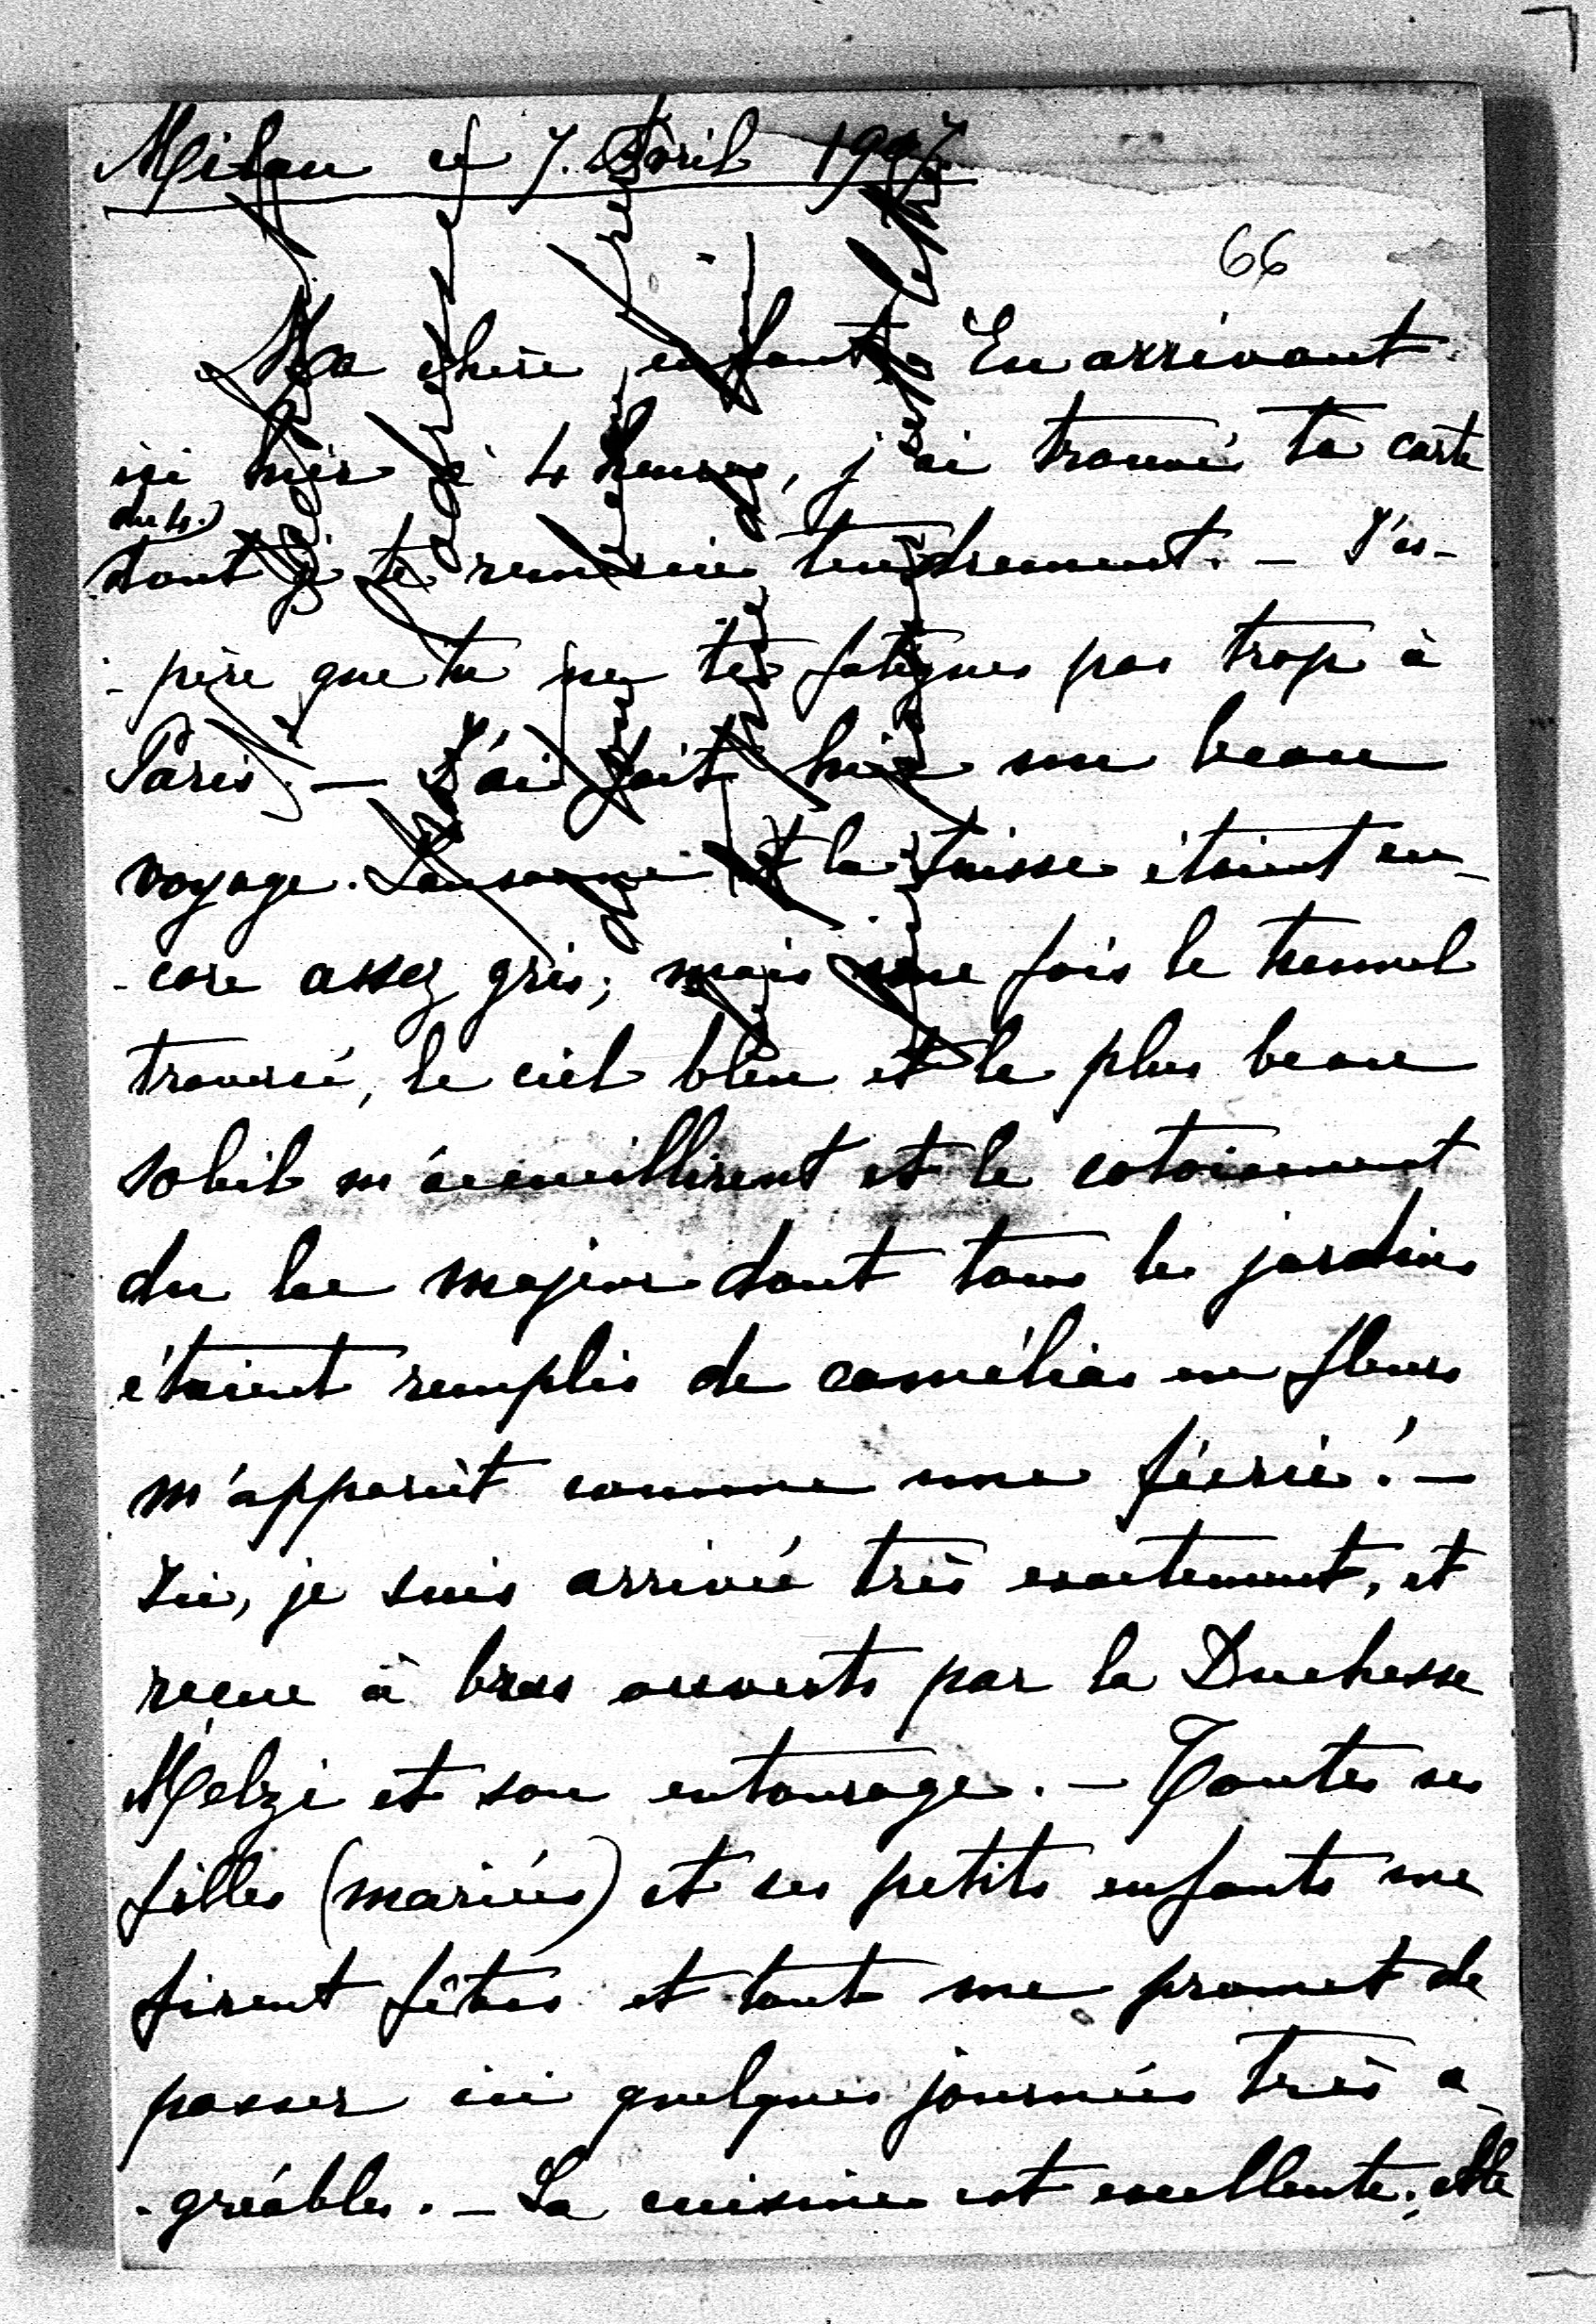 Milan ce 7. Avril 1907.
66
Ma chère enfant, En arrivant
ici hier à 4 heures, j'ai trouvé ta carte
du 4.)
dont je te remercie tendrement. – J'es-
-père que tu ne te fatigues pas trop à
Paris. – J'ai fait hier un beau
voyage. Lausanne et la Suisse étaient en-
-core assez gris; mais une fois le tunnel
traversé, le ciel bleu et le plus beau
soleil m'accueillirent et le cotoiement
du lac majeur dont tous les jardins
étaient remplis de camélias en fleurs
m'apparût comme une féerie! –
Ici, je suis arrivée très exactement, et
reçue à bras ouverts par la Duchesse
Melzi et son entourage. – Toutes ses
filles (mariées) et ses petits enfants me
firent fêtes et tout me promet de
passer ici quelques journées très a-
-gréables. – La cuisine est excellente; elle